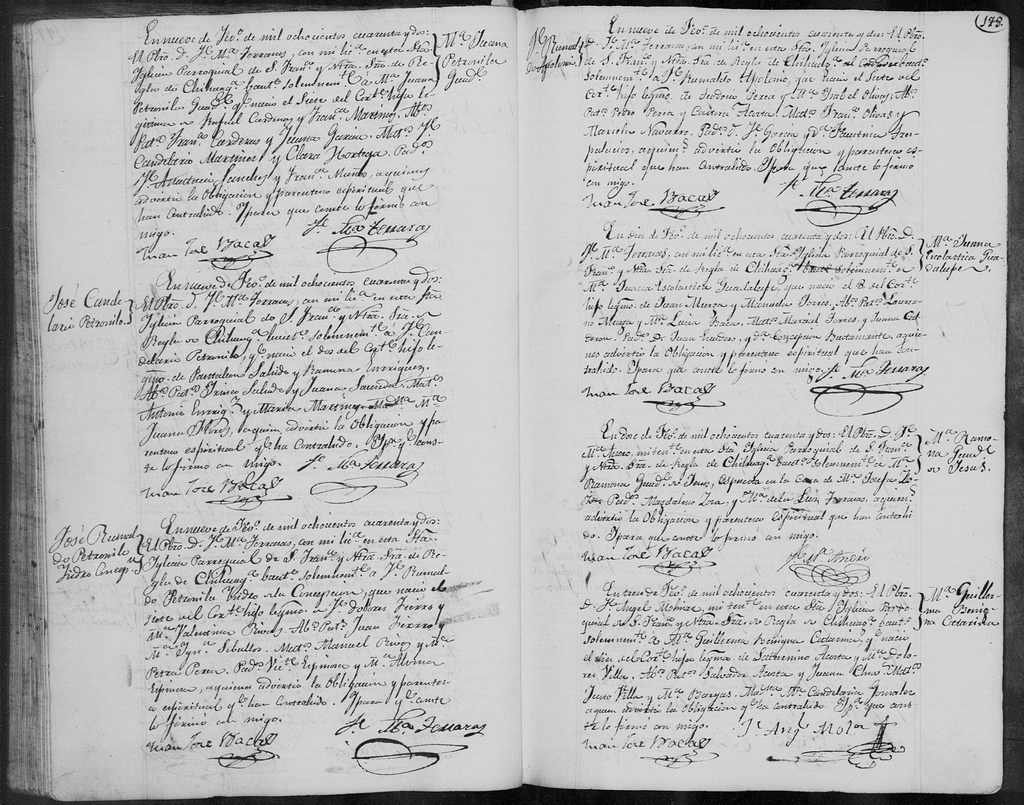 En nueve de Feo. de mil ochocientos cuarenta y dos:
El Pbro. D. Je. Ma. Terrazas, con mi lica. en esta Sta.
Iglecia Parroquial de S. Franco. y Ntra. Sra. de Re-
gla de Chihuaga. bauto. solemnemte. a Ma. Juana
Petronila Guade. qe. nacio el Siete del Corte. hija le-
gitima de Rafael Cardenas y Franca. Martinez. Abs.
Pats. Franco. Cardenas y Juana Garcia. Mats. Je.
Candelario Martines y Clara Hortega. Pads.
Je. Anastacio Sanches y Franca. Muños, aquienes
adverti la Obligacion y parentesco espiritual que
han Contraido. Y para que conste lo firmó con
migo.
Juan José Bacas
Je. Ma. Terrazas
Ma. Juana
Petronila
Guade.
José Cande
lario Petronilo.
En nueve de Feo. de mil ochocientos cuarenta y dos:
El Pbro. D. Je. Ma. Terrazas, con mi lica. en esta Sta.
Iglecia Parroquial de S. Franco. y Ntra. Sra. de
Regla de Chihuaga. bauto. solemnemte. a Je. Can-
delario Petronilo, qe. nació el dos del Corte. hijo le-
gmo. de Pantaleon Salcido y Ramona Enrriquez.
Abs. Pats. Trinio. Salcido y Juana Saucedo. Mats.
Antonio Enrriqz. y Maria Martinez. Madna. Ma.
Juana Flores, aquien adverti la Obligacion y pa-
rentesco espiritual qe. ha Contraido. Y pa. qe. cons-
te lo firmo con migo.
Je. Ma. Terrazas
Juan José Bacas
José Rumal
do Petronilo
Ysidro Concepn.
En nueve de Feo. de mil ochocientos cuarenta y dos:
El Pbro. D. Je. Ma. Terrazas, con mi lica. en esta Sta.
Iglecia Parroquial de S. Franco. y Ntra. Sra. de Re-
gla de Chihuaga. bauto. solemnemte. a Je. Rumal-
do Petronilo Ysidro de la Concepcion, que nacio el
siete del Corte. hijo legmo. de Je. Dolores Fierro y
Ma. Valentina Rivas. Abs. Pats. Juan Fierro y
Ma. Ygna. Seballos. Mats. Manuel Rivas y Ma.
Petra Perea. Pads. Vice. Espinosa y Ma.
Espinosa, aquienes adverti la Obligacion y parentes-
co espiritual qe. han contraido. Y para qe. conste
lo firmo con migo.
Je. Ma. Terrazas
Juan José Bacas
148.
Je. Rumaldo
Apolonio
En nueve de Feo. de mil ochocientos cuarenta y dos: El Pbro.
D. Je. Ma. Terrazas, con mi lica. en esta Sta. Iglecia Parroquial
de S. Franco. y Ntra. Sra. de Regla de Chihuaga. bauto.
solemnemte. a Je. Rumaldo Apolonio, que nacio el Siete del
Corte. hijo legmo. de Teodoro Perea y Ma. Ysabel Olivas. Abs.
Pats. Pedro Perea y Casimira Acosta. Mats. Franco. Olivas y
Navarro. Pads. J. Garcia y Da. Faustina Tres-
palacios, aquienes adverti la Obligacion y parentesco es-
piritual que han contraido. Y para que conste lo firmo
con migo.
Je. Ma. Terrazas
Juan José Bacas
En dies de Feo. de mil ochocientos cuarenta y dos: El Pbro. D.
Je. Ma. Terrazas, con mi lica. en esta Sta. Iglecia Parroquial de S.
Franco. y Ntra. Sra. de Regla de Chihuaga. bauto. solemnemte. a
Ma. Juana Escolastica Guadalupe que nacio el 8. del Corte.
hija legma. de Juan Meraz y Manuela Torres. Abs. Pats. Loren-
zo Meraz y Ma. Luisa Baca. Mats. Marcial Torres y Juana Cal-
deron. Pads. Dn. Juan y Da. Concepcion Bustamante, aquie-
nes adverti la Obligacion y parentesco espiritual que han con-
traido. Y para qe. conste lo firmo con migo.
Je. Ma. Terrazas
Juan José Bacas
Ma. Juana
Escolastica Gua
dalupe.
En doce de Feo. de mil ochocientos cuarenta y dos: El Pbro. D. Je.
Ma. mi tente. en esta Sta. Iglecia Parroquial de S. Franco.
y Ntra. Sra. de Regla de Chihuaga. bauto. solemnemte. a Ma.
Ramona Guade. de Jesus, espuesta en la Casa de Ma. Josefa
Pads. Magdaleno y Ma. de la Luz Terrazas, aquienes
adverti la Obligacion y parentesco espiritual que han contrai-
do. Y para que conste lo firmo con migo.
Juan José Bacas
Ma. Ramo-
na Guade.
de Jesus.
En trece de Feo. de mil ochocientos cuarenta y dos: El Pbro.
D. Je. Angel Molinar, mi tente. en esta Sta. Iglecia Parro-
quial de S. Franco. y Ntra. Sra. de Regla de Chihuaga. bauto.
solemnemte. a Ma. Guillerma Benigna Catarina, qe. nacio
el dies del Corte. hija legma. de Saturnino Acosta y Ma. Dolo-
res Villa. Abs. Pats. Salvador Acosta y Juana Mats.
Justo Villa y Ma. Bargas. Madna. Ma. Candelaria Gonsales
aquien adverti la Obligacion qe. ha contraido. Y pa. que cons-
te lo firmó con migo.
Je. Angl. Molr.
Juan José Bacas
Ma. Guiller-
ma Benig-
na Catarina